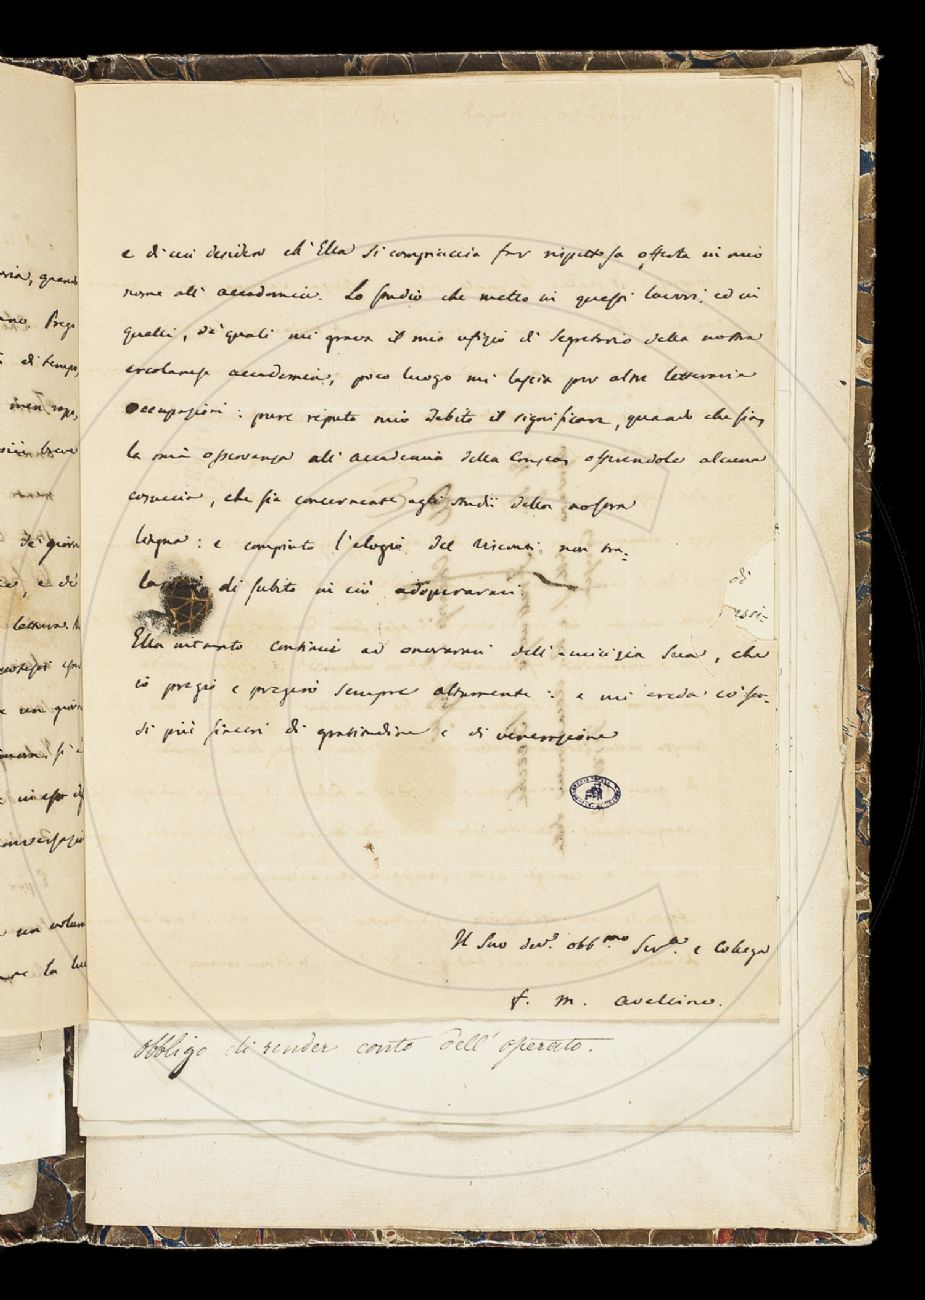 e di cui desidero ch'Ella si compiaccia far rispettosa offerta in mio
nome all'accademia. Lo studio che metto in questi lavori, ed in
quelli, de' quali mi grava il mio ufizio di Segretario della nostra
ercolanese accademia, poco luogo mi lascia per altre letterarie
occupazioni: pure reputo mio debito il significare, quando che sia,
la mia osservanza all'accademia della Crusca, offrendole alcuna
cosuccia, che sia concernente agli studii della nostra
lingua: e compiuto l'elogio del Visconti non tra-
di subito in ciò adoperarmi.
Ella intanto continui ad onorarmi dell'amicizia Sua, che
io pregio e pregerò sempre altamente: e mi creda co' sen-
si più sinceri di gratitudine e di venerazione
Il Suo dev.° obb.mo Serv.e e Collega
F. M. Avellino.
obbligo di render conto dell'operato.
di
essi-
quando
Prego
di tempo,
più breve
de' giorni
e di
un giorno
si è
un volume